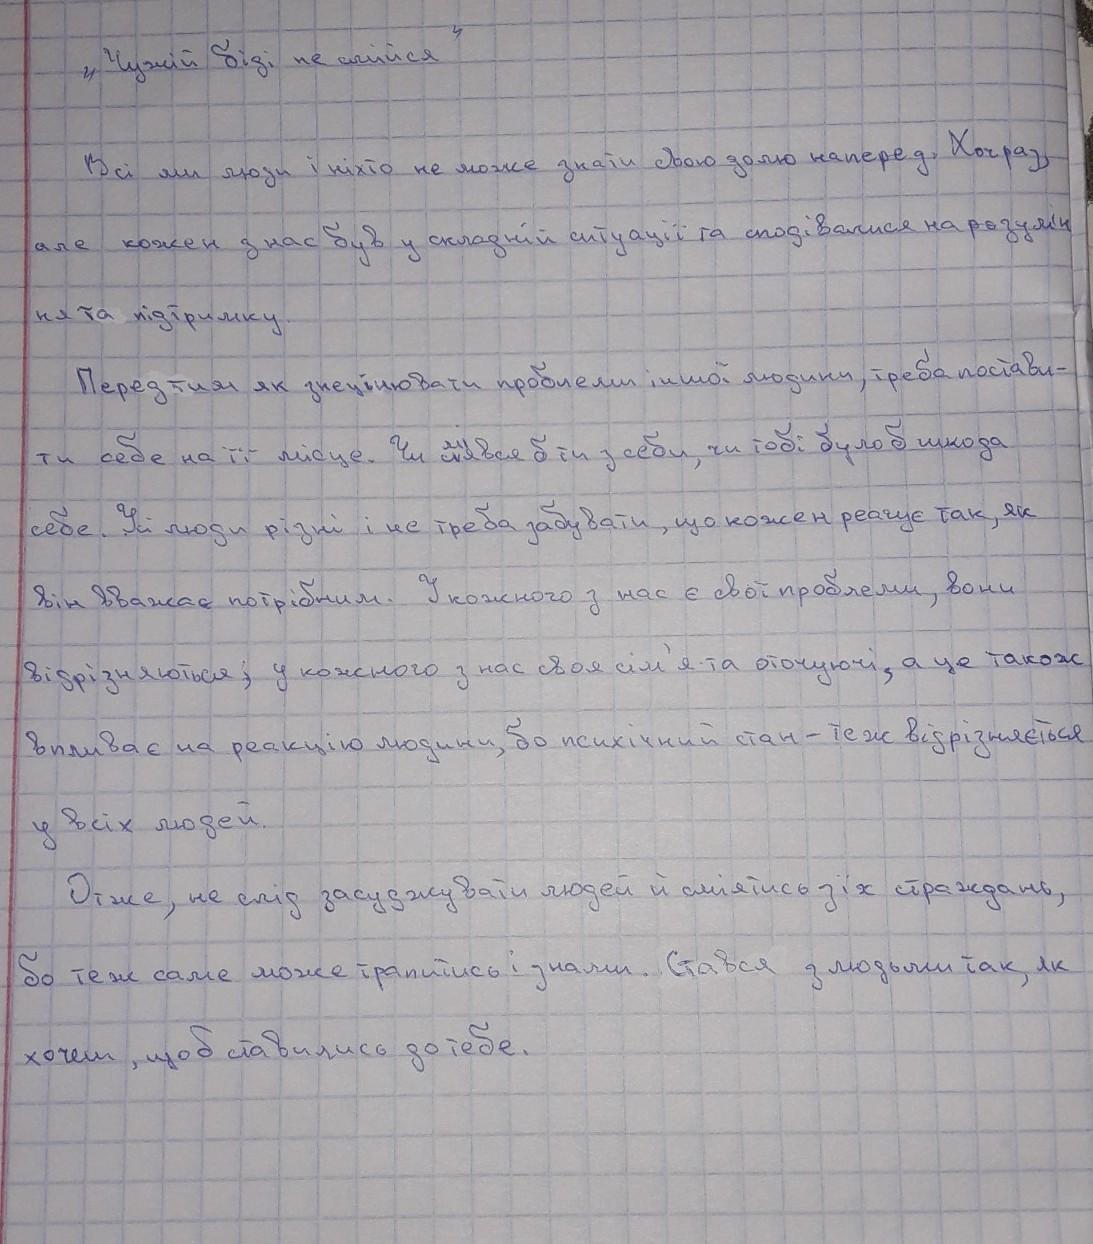 „Чужій біді не смійся"
Всі ми люди і ніхто не може знати свою долю наперед. Хоч раз,
але кожен з нас був у складній ситуації та сподівалися на розумін
ня та підтримку.
Перед тим як знецінювати проблеми іншої людини, треба постави-
ти себе на її місце. Чи міявся б ти з себи, чи тобі було б шкода
себе. Усі люди різні і не треба забувати, що кожен реагує так, як
він вважає потрібним. У кожного з нас є свої проблеми, вони
відрізняються; у кожного з нас своя сім'я та оточуючі, а це також
впливає на реакцію людини, бо психічний стан – теж відрізняється
у всіх людей.
Отже, не слід засуджувати людей й сміятись з їх страждань,
бо теж саме може трапитись і з нами. Стався з людьми так, як
хочеш, щоб ставились до тебе.